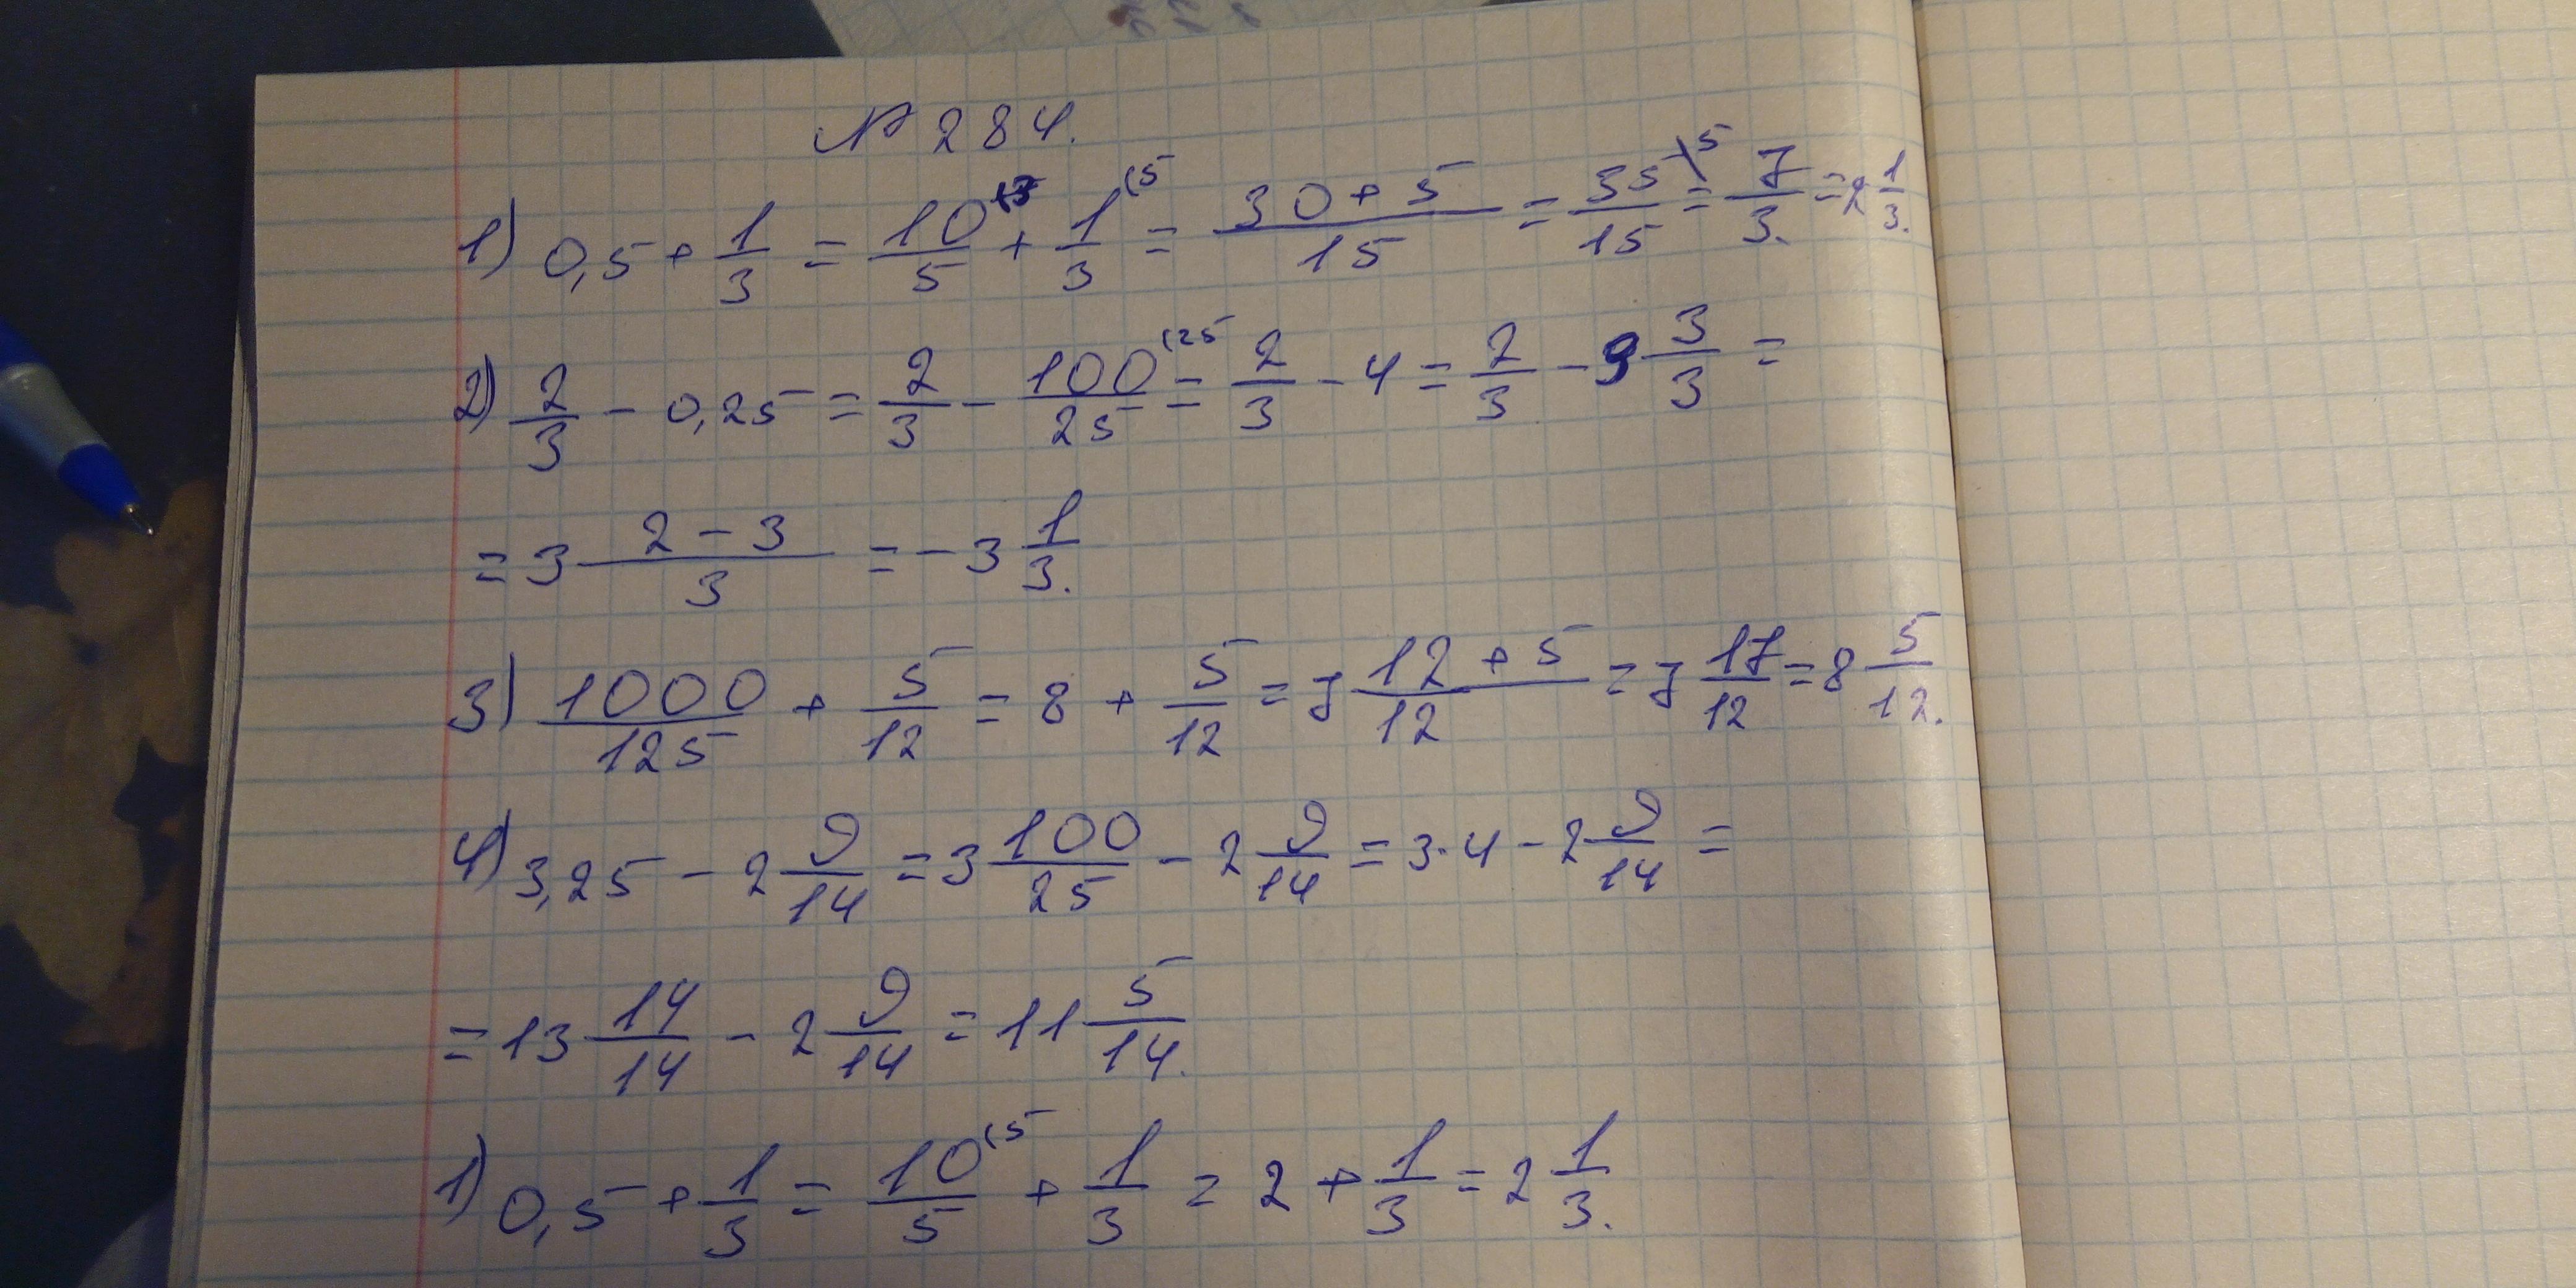 № 284.
1) 0,5 + 1/3 = 10/5 (3 + 1/3 (5 = (30 + 5)/15 = 35/15 \5 = 7/3. = 2 1/3.
2) 2/3 - 0,25 = 2/3 - 100/25 (25 = 2/3 - 4 = 2/3 - 3 3/3 =
= 3 (2 - 3)/3 = - 3 1/3.
3) 1000/125 + 5/12 = 8 + 5/12 = 7 (12 + 5)/12 = 7 17/12 = 8 5/12.
4) 3,25 - 2 9/14 = 3 100/25 - 2 9/14 = 3·4 - 2 9/14 =
= 13 14/14 - 2 9/14 = 11 5/14.
1) 0,5 + 1/3 = 10/5 (5 + 1/3 = 2 + 1/3 = 2 1/3.